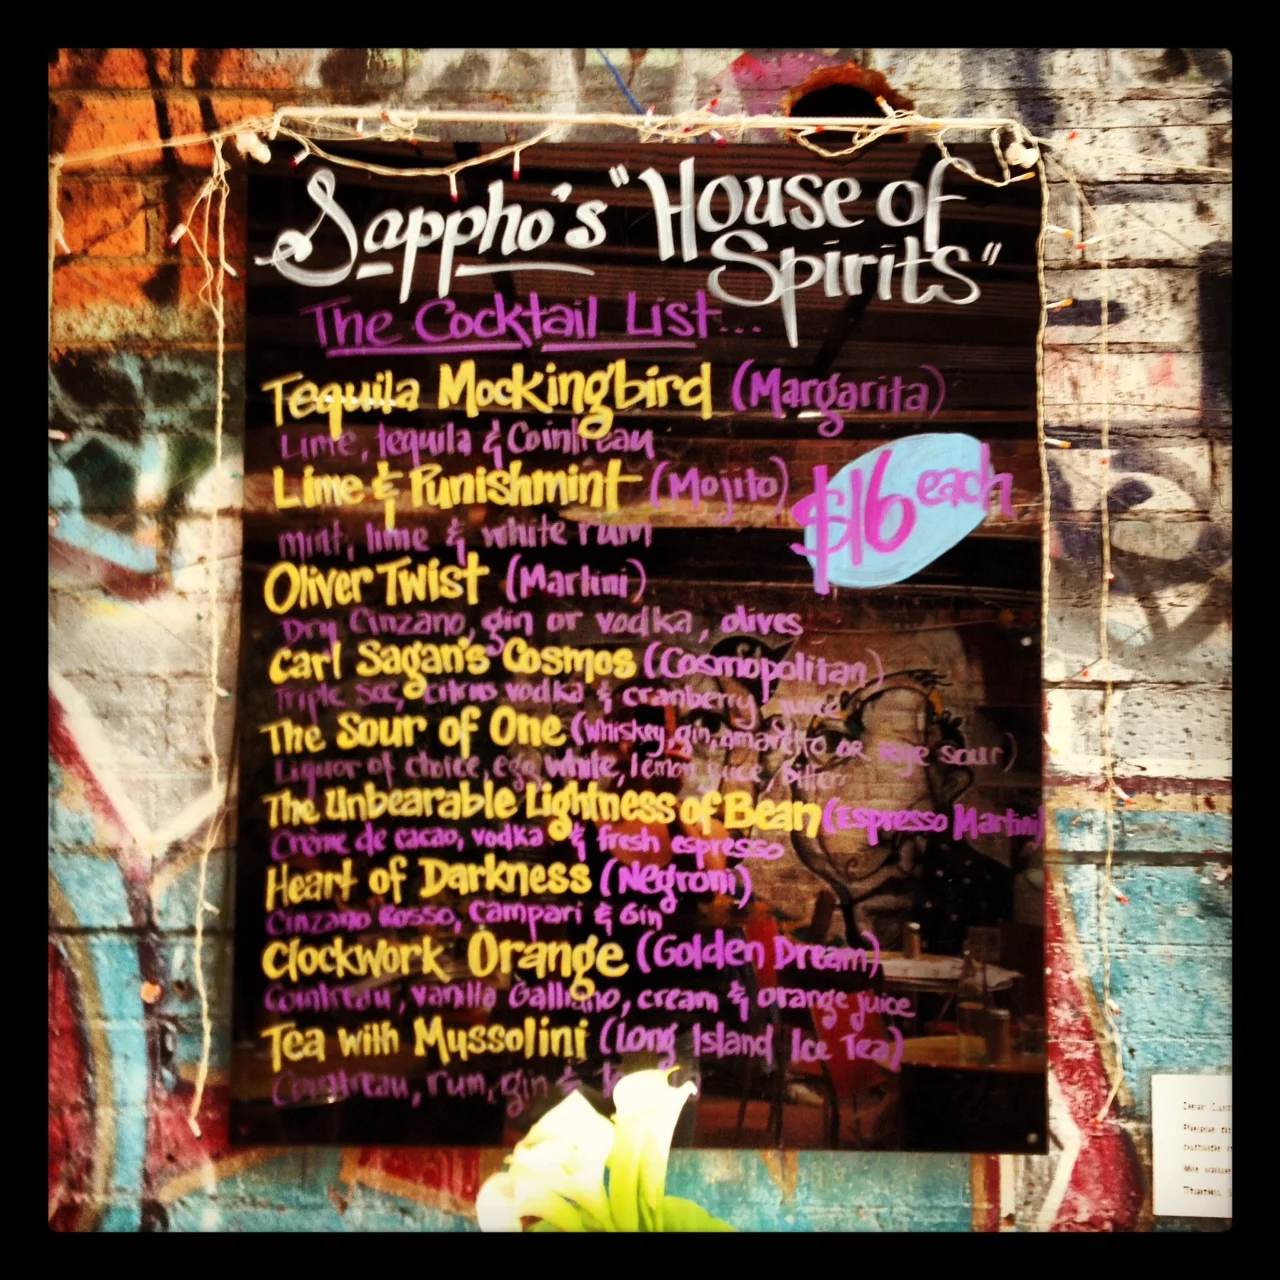 Sappho's "House of
Spirits"
The Cocktail List...
Tequila Mockingbird (Margarita)
Lime, tequila & Cointreau
$16 each
Lime & Punishmint (Mojito)
mint, lime & white rum
Oliver Twist (Martini)
Dry Cinzano, gin or vodka, olives
Carl Sagan's Cosmos (Cosmopolitan)
Triple Sec, citrus vodka & cranberry juice
The Sour of One (Whiskey, gin, amaretto or Rye sour)
Liquor of choice, egg white, lemon juice, bitters
The Unbearable Lightness of Bean (Espresso Martini)
Crème de cacao, vodka & fresh espresso
Heart of Darkness (Negroni)
Cinzano Rosso, Campari & Gin
Clockwork Orange (Golden Dream)
Cointreau, vanilla Galliano, cream & orange juice
Tea with Mussolini (Long Island Ice Tea)
Cointreau, rum, gin &
Dear
Please
outside
We value
Thanks